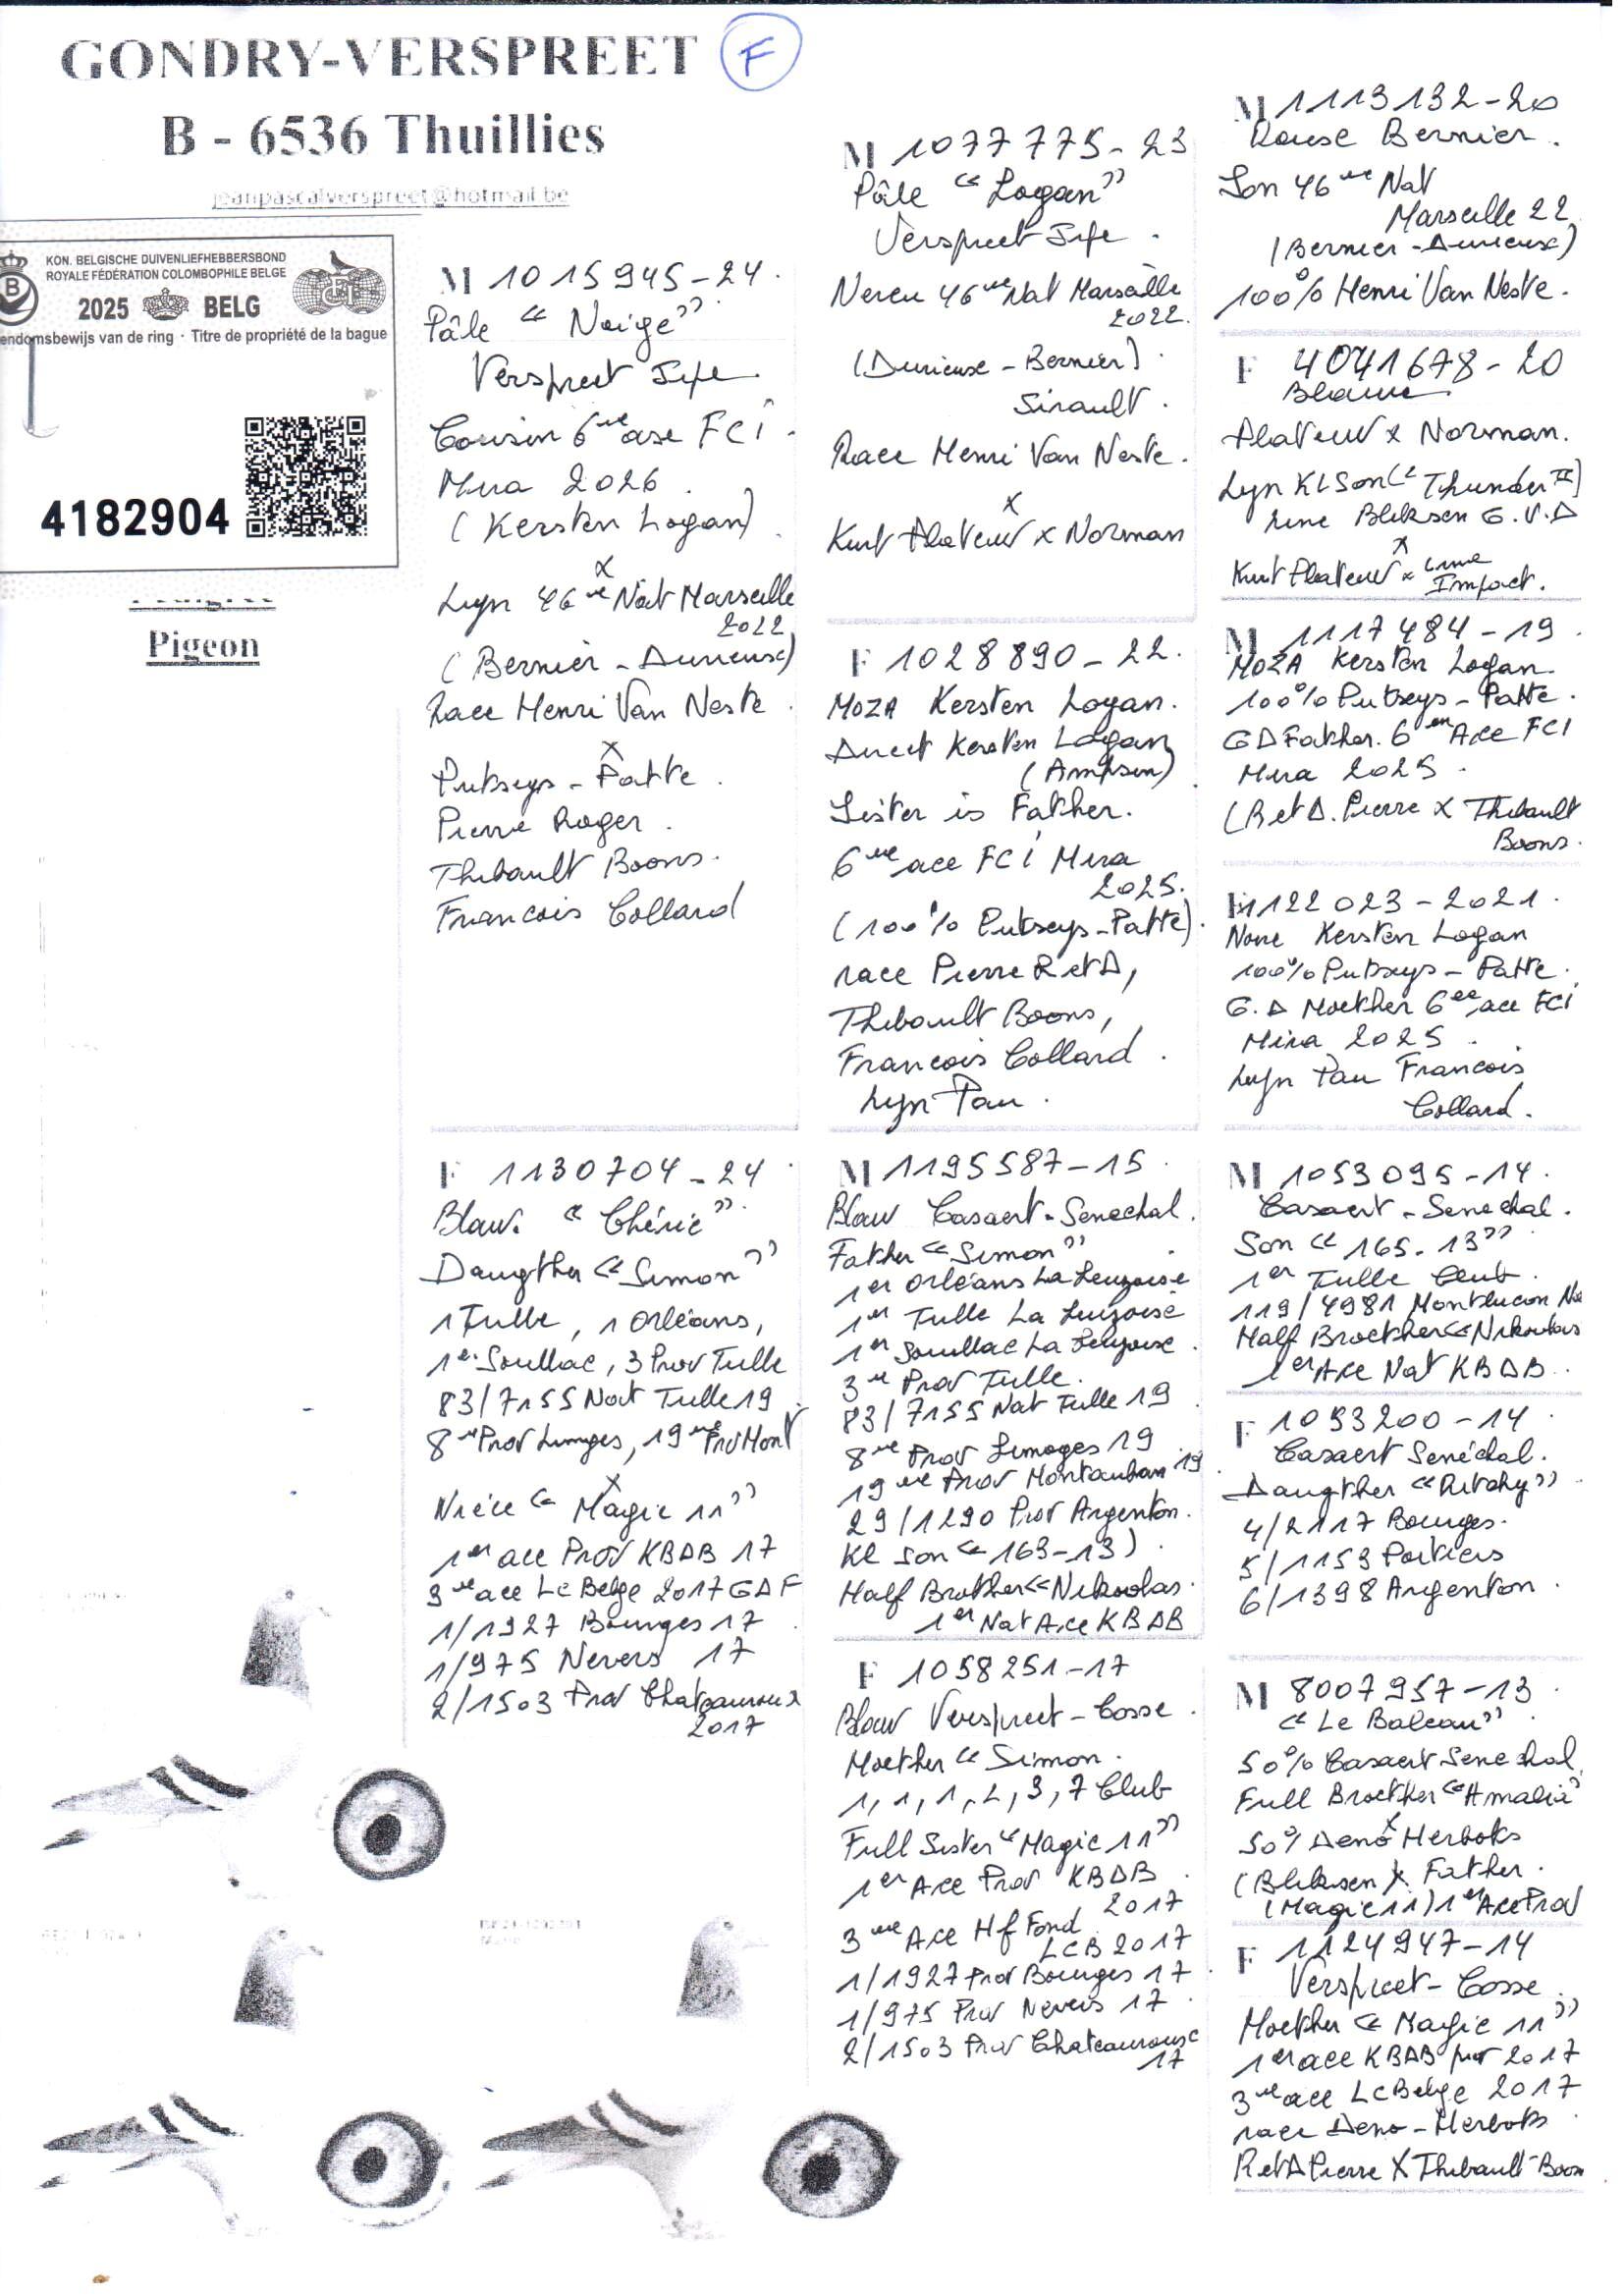 GONDRY-VERSPREET
F
B - 6536 Thuillies
jeanpascalverspreet@hotmail.be
KON. BELGISCHE DUIVENLIEFHEBBERSBOND
ROYALE FÉDÉRATION COLOMBOPHILE BELGE
2025 BELG
endomsbewijs van de ring · Titre de propriété de la bague
4182904
Pedigree
Pigeon
M 1015945-24.
Pâle "Neige"
Verspreet Jype.
Cousin 6me ase FCI.
Mira 2026.
(Kersten Logan)
x
Lyn 46me Nat Marseille
2022
(Bernier - Durieux)
Race Henri Van Neste.
x
Putseys - Patte.
Pierre Roger.
Thibault Boons.
Francois Collard
F 1130704-24
Blauw. "Chérie"
Daugther "Simon"
1 Tulle, 1 Orléans,
1er Souillac, 3 Prov Tulle
83/7155 Nat Tulle 19
8me Prov Limoges, 19me Prov Mont
x
Nièce "Magic 11"
1er ace Prov KBDB 17
3me ace Lc Belge 2017 GDF
1/1927 Bourges 17
1/975 Nevers 17
2/1503 Prov Chateauroux
2017
M 1077775-23
Pâle "Logan"
Verspreet Jype.
Neveu 46me Nat Marseille
2022.
(Durieux - Bernier).
Sirault.
Race Henri Van Neste.
x
Kurt Plateuw x Norman
F 1028890-22.
MOZA Kersten Logan.
Direct Kersten Logan
(Ampsin)
Sister is Father.
6me ace FCI Mira
2025.
(100% Putseys-Patte).
race Pierre R et D,
Thibault Boons,
Francois Collard.
Lyn Pau.
M 1195587-15.
Blauw Casaert-Senechal.
Father "Simon"
1er Orléans La Leuzoise
1er Tulle La Leuzoise
1er Souillac La Leuzoise.
3me Prov Tulle.
83/7155 Nat Tulle 19
8me Prov Limoges 19
19me Prov Montauban 19
29/1290 Prov Argenton.
Kl Son "163-13)
Half Brother "Nikolas.
1er Nat Ace KBDB
F 1058251-17
Blauw Verspreet-Cosse.
Moether "Simon.
1, 1, 1, 2, 3, 7 Club
Full Sister "Magic 11"
1er Ace Prov KBDB
2017
3me Ace Hf Fond
LCB 2017
1/1927 Prov Bourges 17
1/975 Prov Nevers 17.
2/1503 Prov Chateauroux
17
M 1113132-20
Rouse Bernier.
Son 46me Nat
Marseille 22
(Bernier - Durieux)
100% Henri Van Neste.
F 4041678-20
Blauw.
Plateuw x Norman.
Lyn Kl Son "Thunder II)
Line Bliksem G.V.D
x
Kurt Plateuw x Line
Impact.
M 1117484-19.
MOZA Kersten Logan.
100% Putseys-Patte.
GD Father. 6en Ace FCI
Mira 2025.
(R et D. Pierre x Thibault
Boons.
F 1122023-2021.
Noire Kersten Logan
100% Putseys-Patte.
G.D Moether 6ee ace FCI
Mira 2025.
Lyn Pau Francois
Collard.
M 1053095-14.
Casaert-Senechal.
Son "165-13"
1er Tulle Club.
119/4981 Montlucon Na
Half Broether "Nikolas
1er Ace Nat KBDB.
F 1093200-14.
Casaert Senéchal.
Daugther "Ritchy"
4/2117 Bourges.
5/1153 Poitiers
6/1398 Argenton.
M 8007957-13.
"Le Baleau"
50% Casaert Senechal
Full Broether "Amalia"
x
50% Deno Herbots
(Bliksem x Father.
(Magic 11) 1er Ace Prov
F 1124947-14
Verspreet-Cosse.
Moether "Magic 11"
1er ace KBDB prov 2017
3me ace Lc Belge 2017
race Deno-Herbots.
R et D Pierre X Thibault-Boon